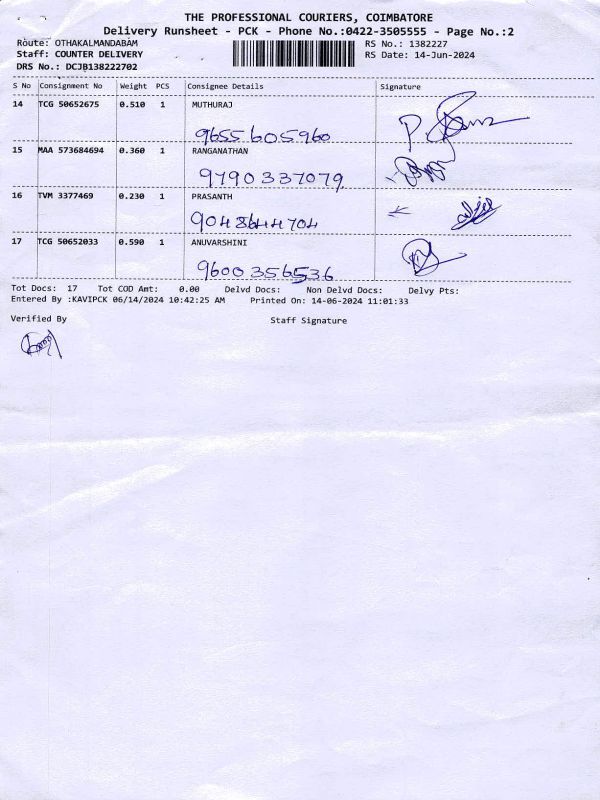 THE PROFESSIONAL COURIERS, COIMBATORE
Delivery Runsheet - PCK - Phone No.:0422-3505555 - Page No.:2
Route: OTHAKALMANDABAM RS No.: 1382227
Staff: COUNTER DELIVERY RS Date: 14-Jun-2024
DRS No.: DCJB138222702
S No Consignment No Weight PCS Consignee Details Signature
14 TCG 50652675 0.510 1 MUTHURAJ
9655605960
15 MAA 573684694 0.360 1 RANGANATHAN
9790337079
16 TVM 3377469 0.230 1 PRASANTH
9048644704
17 TCG 50652033 0.590 1 ANUVARSHINI
9600356536
Tot Docs: 17 Tot COD Amt: 0.00 Delvd Docs: Non Delvd Docs: Delvy Pts:
Entered By :KAVIPCK 06/14/2024 10:42:25 AM Printed On: 14-06-2024 11:01:33
Verified By Staff Signature